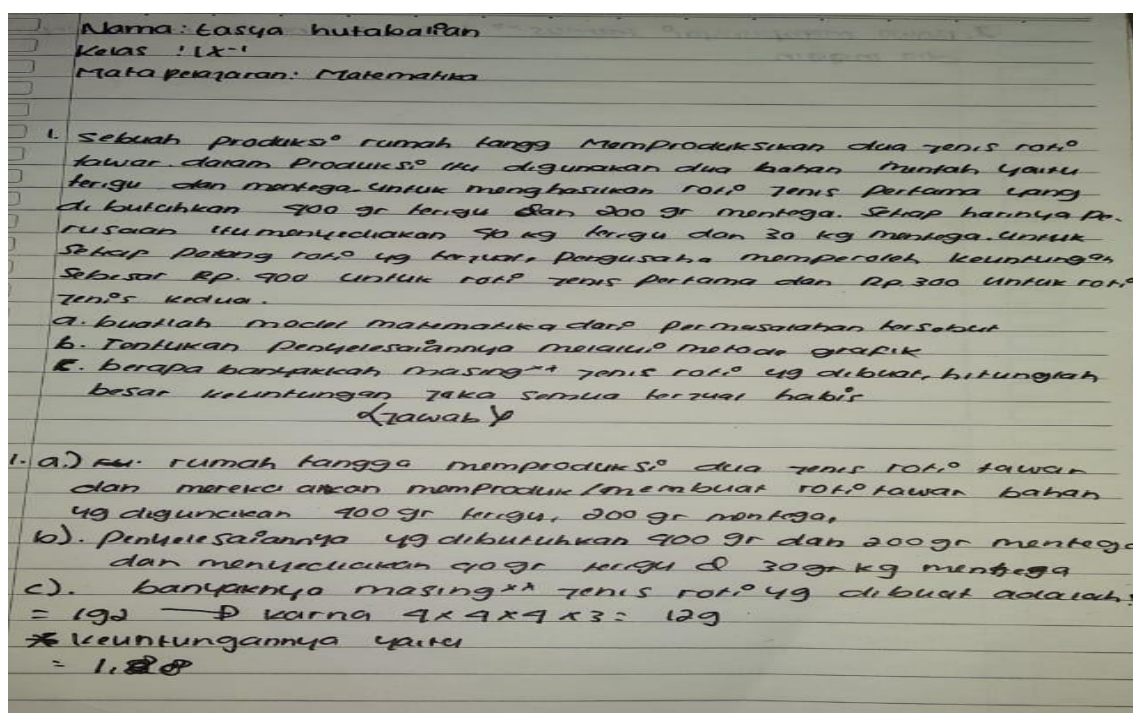 Nama : tasya hutabalian
Kelas : IX-1
Mata pelajaran : Matematika
1. Sebuah produksi rumah tangg Memproduksikan dua jenis roti
tawar. dalam Produksi itu digunakan dua bahan mentah yaitu
terigu dan mentega. untuk menghasilkan roti jenis pertama yang
di butuhkan 400 gr terigu dan 200 gr mentega. Setiap harinya pe-
rusaan itu menyediakan 40 kg terigu dan 30 kg mentega. untuk
Setiap potong roti yg terjual, Pengusaha memperoleh keuntungan
Sebesar RP. 400 untuk roti jenis Pertama dan RP. 300 untuk roti
jenis kedua.
a. buatlah model matematika dari permasalahan tersebut
b. Tentukan penyelesaiannya melalui metode grafik
c. berapa banyakkah masing" jenis roti yg dibuat, hitunglah
besar keuntungan jaka semua terjual habis
(jawab)
1. a.) rumah tangga memproduksi dua jenis roti tawar
dan mereka akan memproduk/membuat roti tawar bahan
yg digunakan 400 gr terigu, 200 gr mentega,
b). Penyelesaiannya yg dibutuhkan 400 gr dan 200 gr mentega
dan menyediakan 40 gr terigu & 30 gr kg mentega
c). banyaknya masing" jenis roti yg dibuat adalah:
= 192 → karna 4 x 4 x 4 x 3 = 129
* keuntungannya yaitu